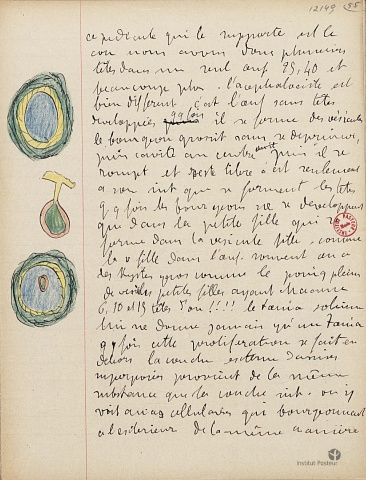 12149 55
ce pédicule qui le supporte est le
cou nous avons donc plusieurs
têtes dans un seul œuf 25, 40 et
beaucoup plus. l'acephalociste est
bien différent c'est l'œuf sans têtes
developpées qqfois il se forme des vésicules
le bourgeon grossit sans se deprimer,
puis cavité au centre puis il se
rompt et reste libre c'est seulement
a son int que se forment les têtes
qqfois les bourgeons ne se développent
que dans la petite fille qui se
forme dans la vésicule fille, comme
la v fille dans l'œuf. souvent on a
des kystes gros comme le poing pleins
de vésicules petites filles ayant chacune
6, 10 et 15 têtes d'où !!!! le tænia solium
lui ne donne jamais qu'un tænia
qqfois cette proliferation se fait en
dehors la couche externe d'assises
superposées provient de la même
substance que la couche int. on y
voit amas cellulaires qui bourgeonnent
a l'exterieur de la même manière
INSTITUT PASTEUR
Institut Pasteur